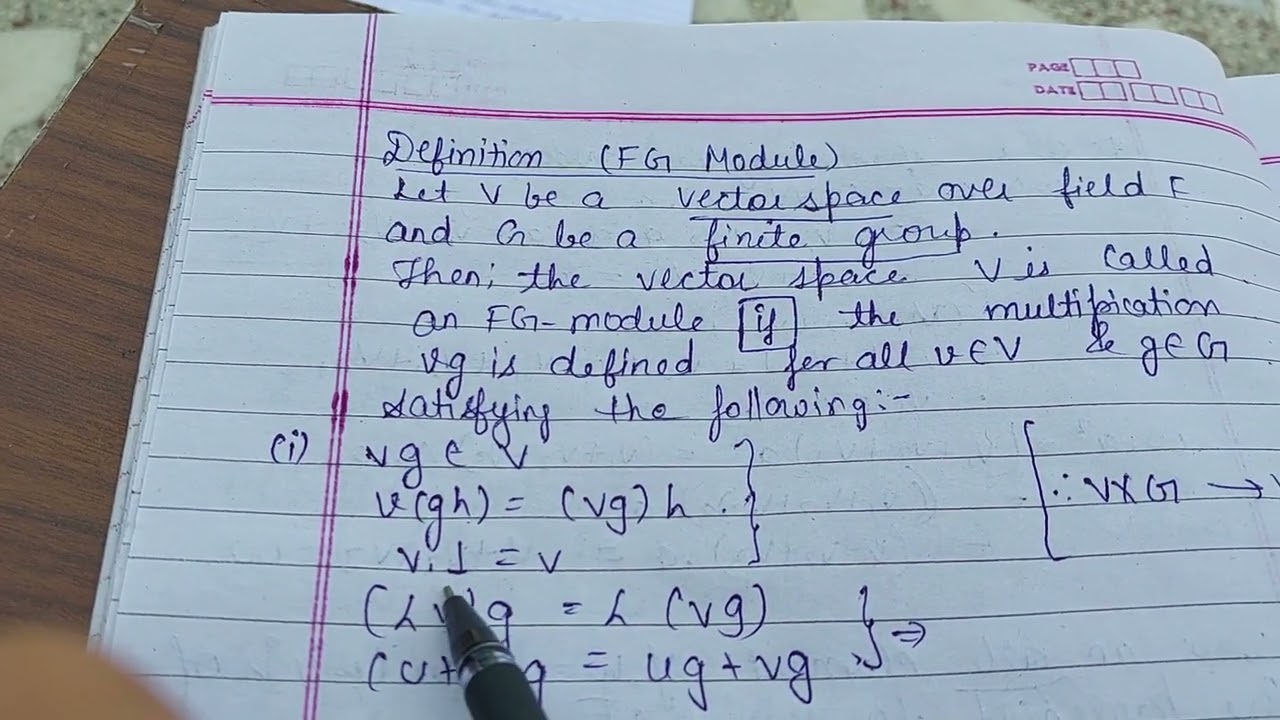 PAGE
DATE
Definition (FG Module)
Let V be a vector space over field F
and G be a finite group.
Then; the vector space V is called
an FG-module if the multipication
vg is defined for all v∈V & g∈G
satisfying the following:-
(i) vg ∈ V
v(gh) = (vg)h
∴ V×G →
v.1 = v
g = λ (vg) ⇒
= ug+vg